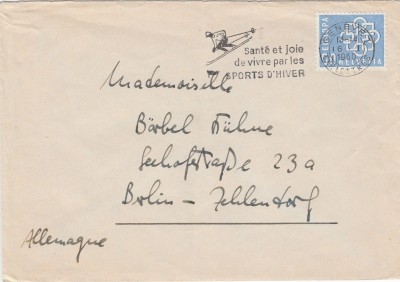 Santé et joie
de vivre par les
SPORTS D'HIVER
EUROPA
HELVETIA
Mademoiselle
Bärbel Kühne
Seehofstraße 23a
Berlin-Zehlendorf
Allemagne